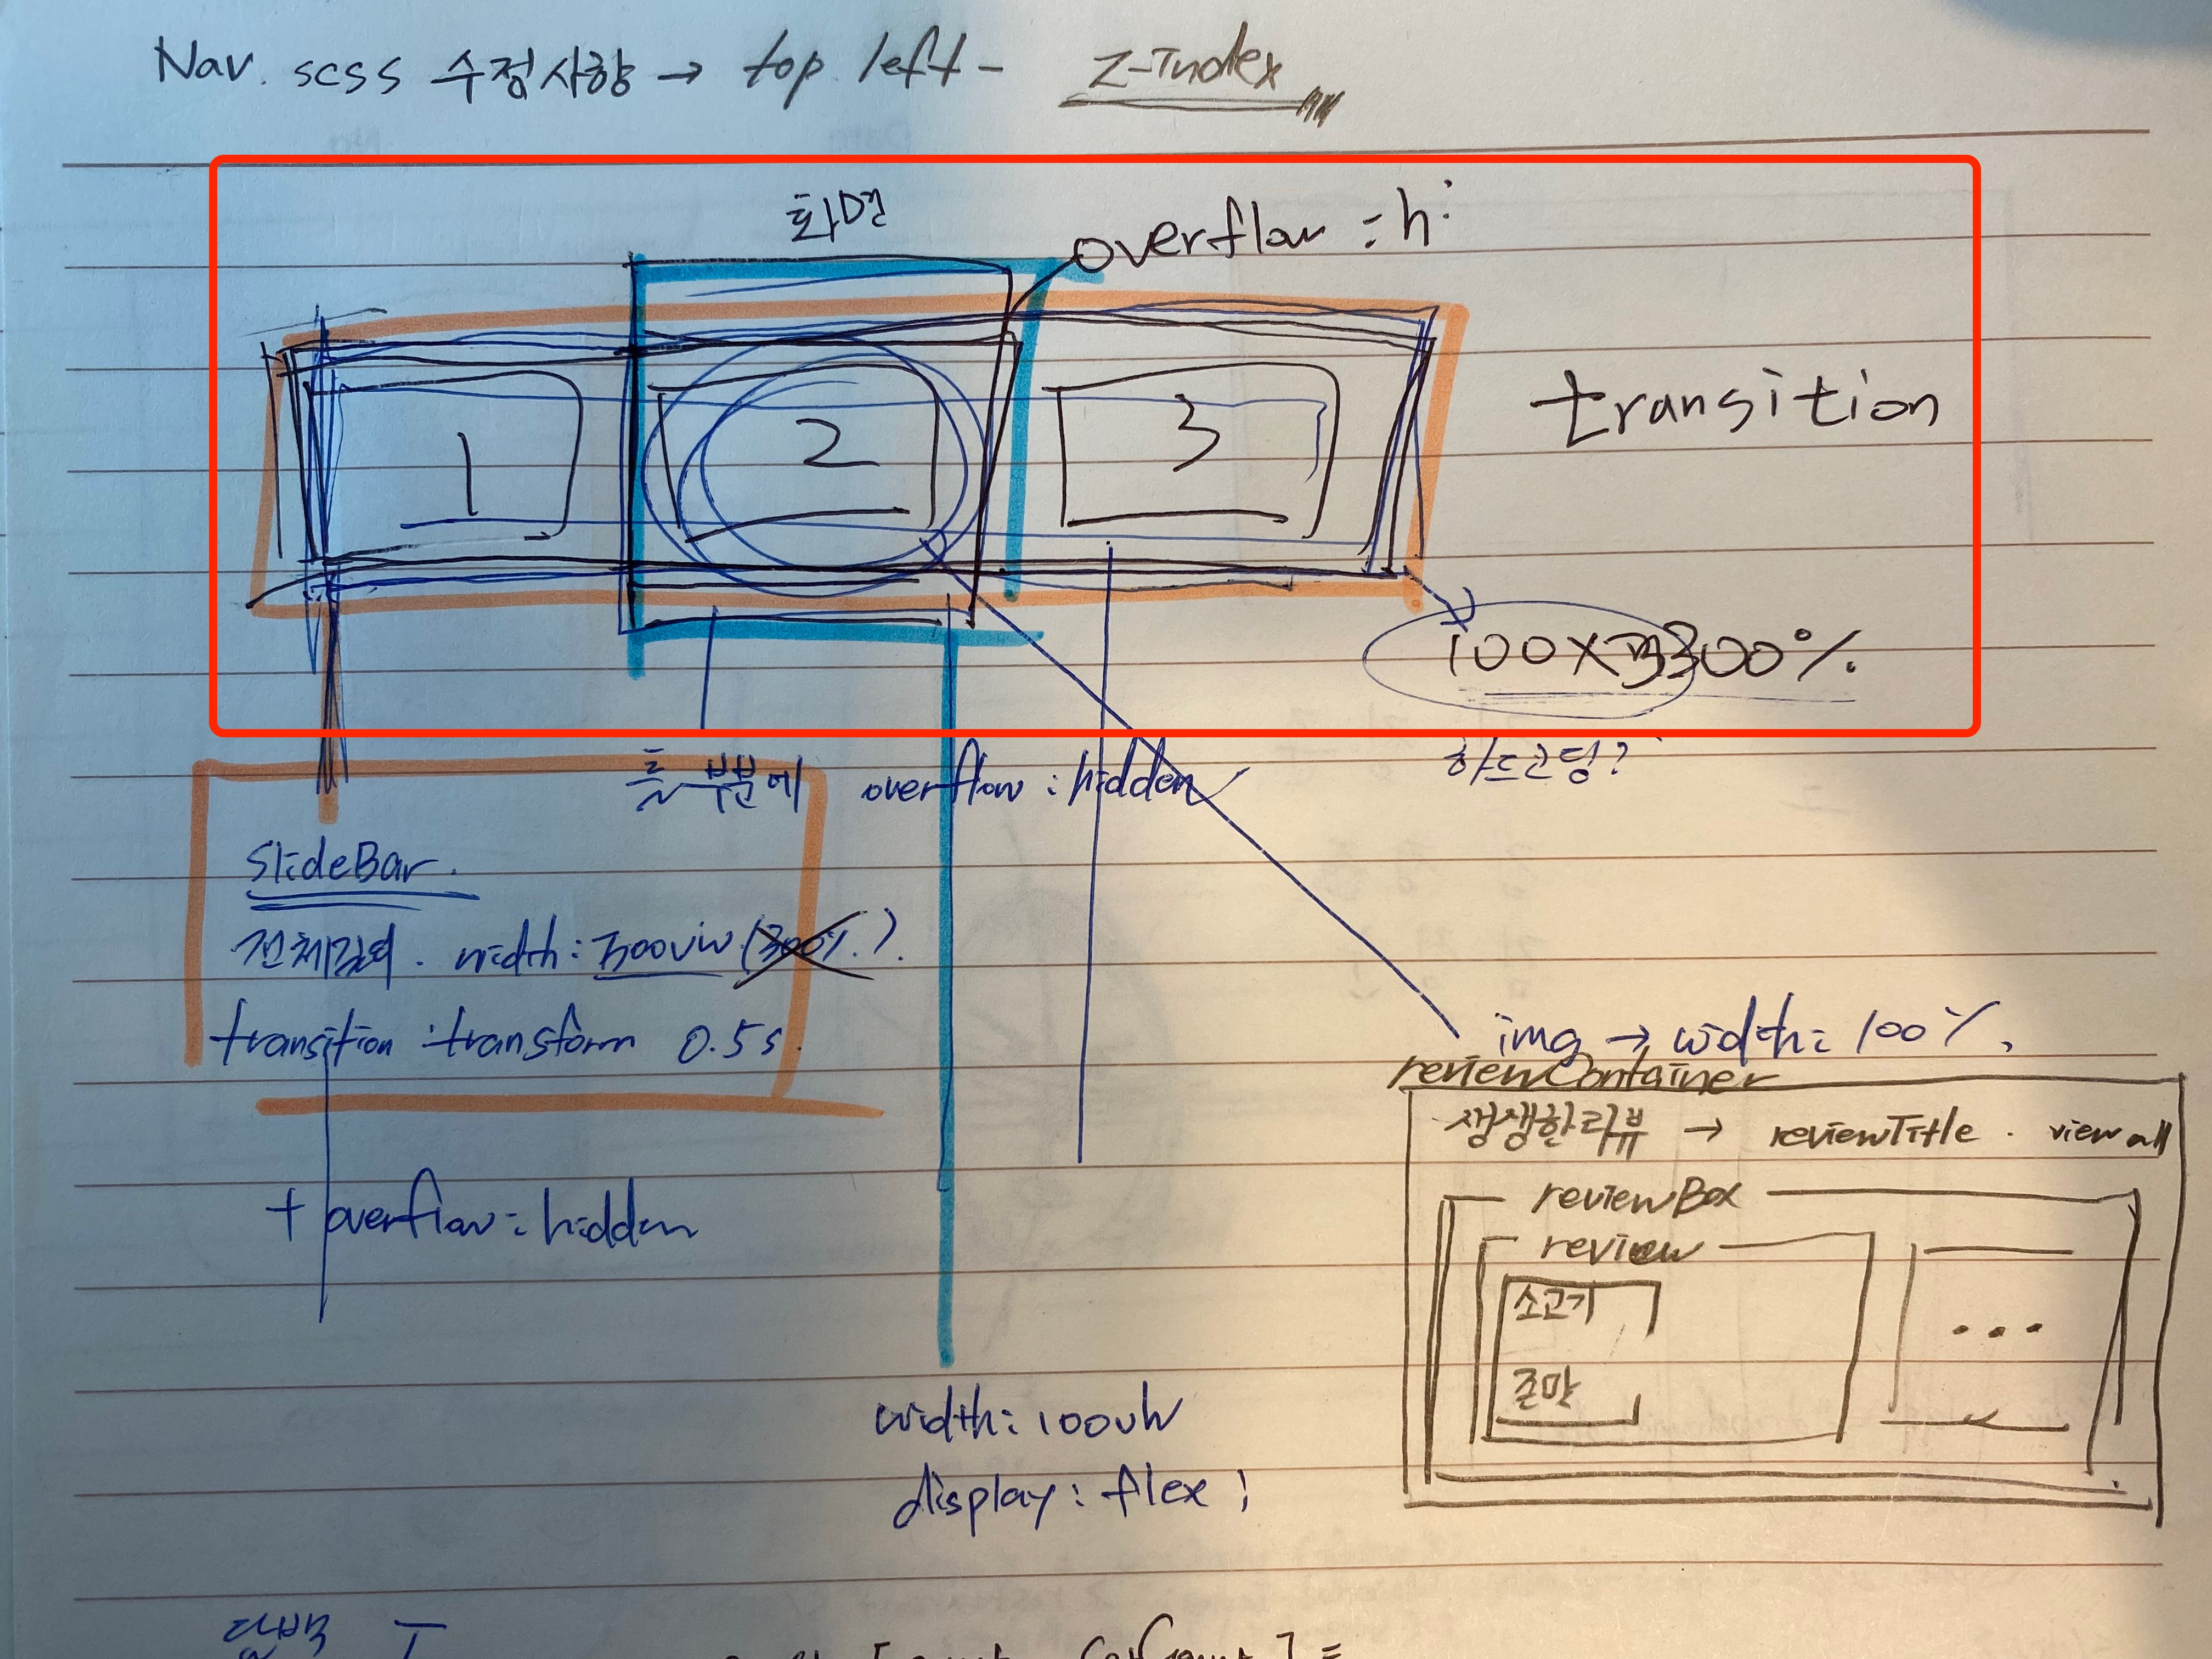 Nav. scss 수정사항 → top left - Z-Index
화면
overflow : h
transition
1 2 3
300%
틀 부분에 overflow : hidden
하드코딩?
slideBar.
전체길이. width: 300vw (300%.).
transition :transform 0.5s.
img → width: 100%.
reviewContainer
생생한리뷰 → reviewTitle . view all
+ overflow : hidden
reviewBox
review
소고기
...
존맛
width: 100vw
display : flex ;